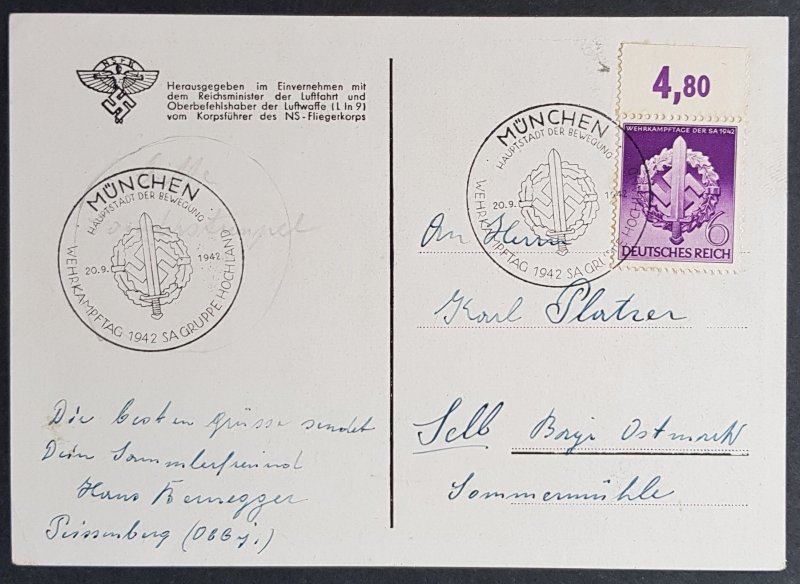 NSFK
Herausgegeben im Einvernehmen mit
dem Reichsminister der Luftfahrt und
Oberbefehlshaber der Luftwaffe (L In 9)
vom Korpsführer des NS-Fliegerkorps
MÜNCHEN
HAUPTSTADT DER BEWEGUNG
20.9. 1942
WEHRKAMPFTAG 1942 SA GRUPPE HOCHLAND
Die besten Grüsse sendet
Dein Sammlerfreund
Hans
Peissenberg (Obby.)
4,80
WEHRKAMPFTAGE DER SA 1942
6
DEUTSCHES REICH
MÜNCHEN
HAUPTSTADT DER BEWEGUNG
20.9. 1942
WEHRKAMPFTAG 1942 SA GRUPPE HOCHLAND
An Herrn
Karl Platzer
Selb Bayr Ostmark
Sommermühle